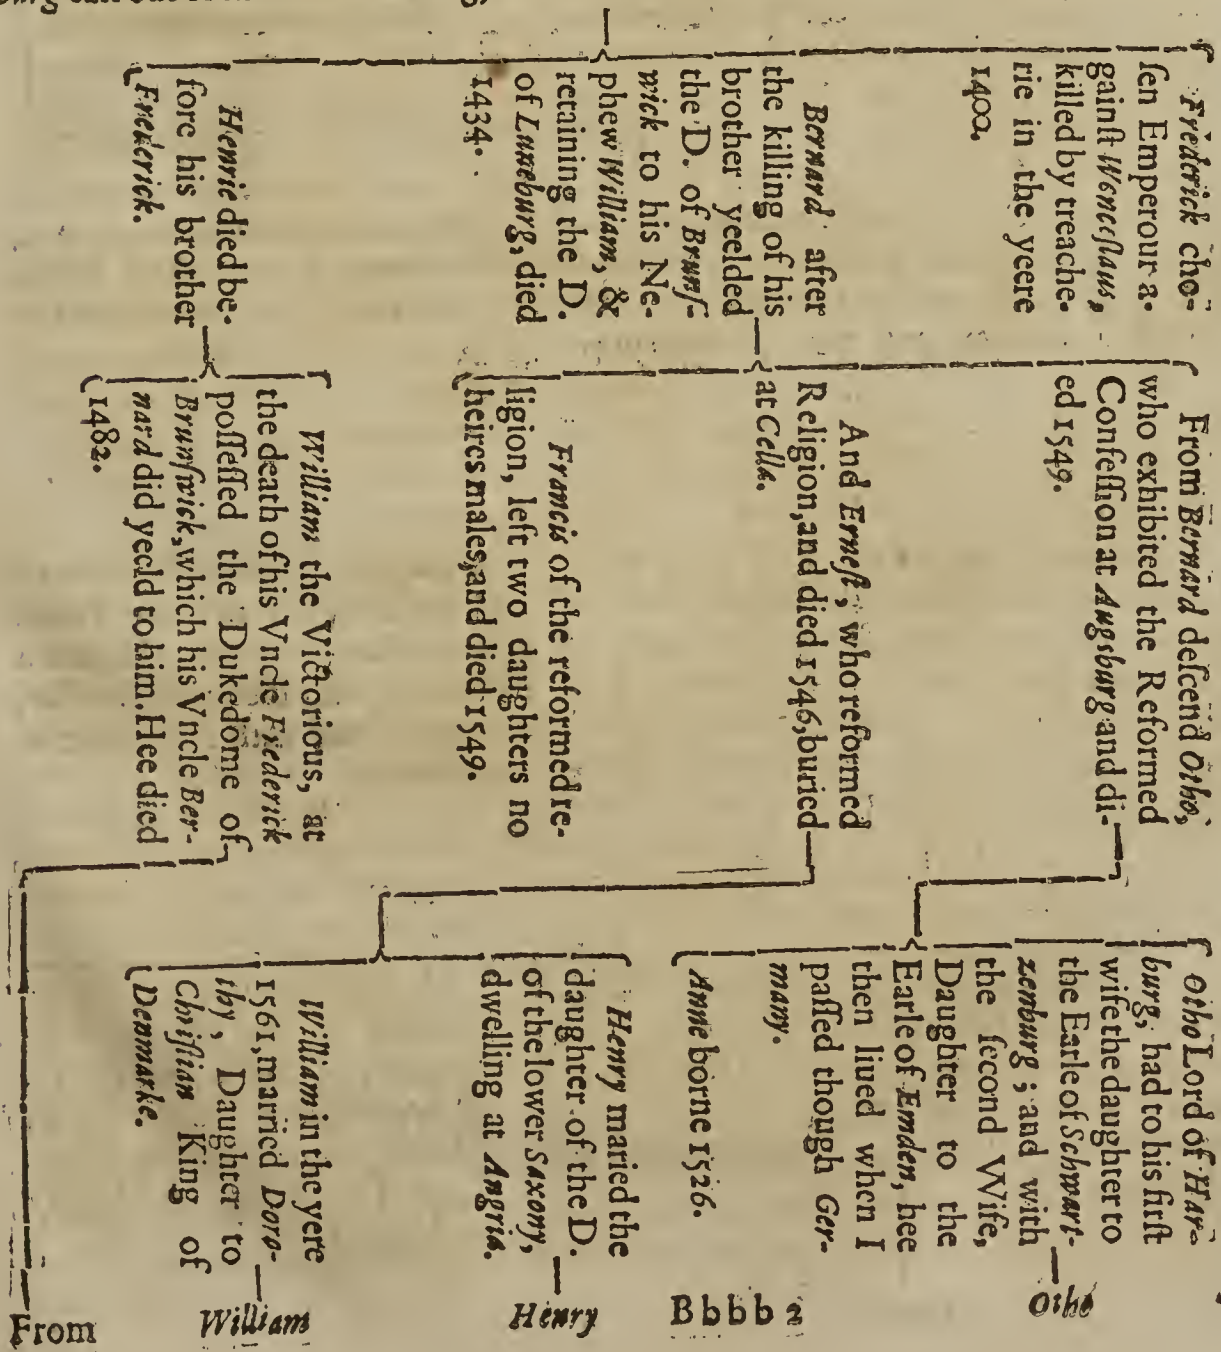 Frederick cho-
ſen Emperour a-
gainſt Wenceſlaus,
killed by treache-
rie in the yeere
1400.
Bernard after
the killing of his
brother yeelded
the D. of Brunſ-
wick to his Ne-
phew William, &
retaining the D.
of Luneburg, died
1434.
Henrie died be-
fore his brother
Frederick.
From Bernard deſcend Otho,
who exhibited the Reformed
Confeſſion at Augsburg and di-
ed 1549.
And Erneſt, who reformed
Religion, and died 1546, buried
at Cella.
Francis of the reformed re-
ligion, left two daughters no
heires males, and died 1549.
William the Victorious, at
the death of his Vncle Frederick
poſſeſſed the Dukedome of
Brunſwick, which his Vncle Ber-
nard did yeeld to him. Hee died
1482.
Otho Lord of Har-
burg, had to his firſt
wife the daughter to
the Earle of Schwart-
zenburg; and with
the ſecond Wife,
Daughter to the
Earle of Emden, hee
then liued when I
paſſed though Ger-
many.
Anne borne 1526.
Henry maried the
daughter of the D.
of the lower Saxony,
dwelling at Angria.
William in the yere
1561, married Doro-
thy, Daughter to
Chriſtian King of
Denmarke.
Otho
Henry
William
Bbbb 2
From